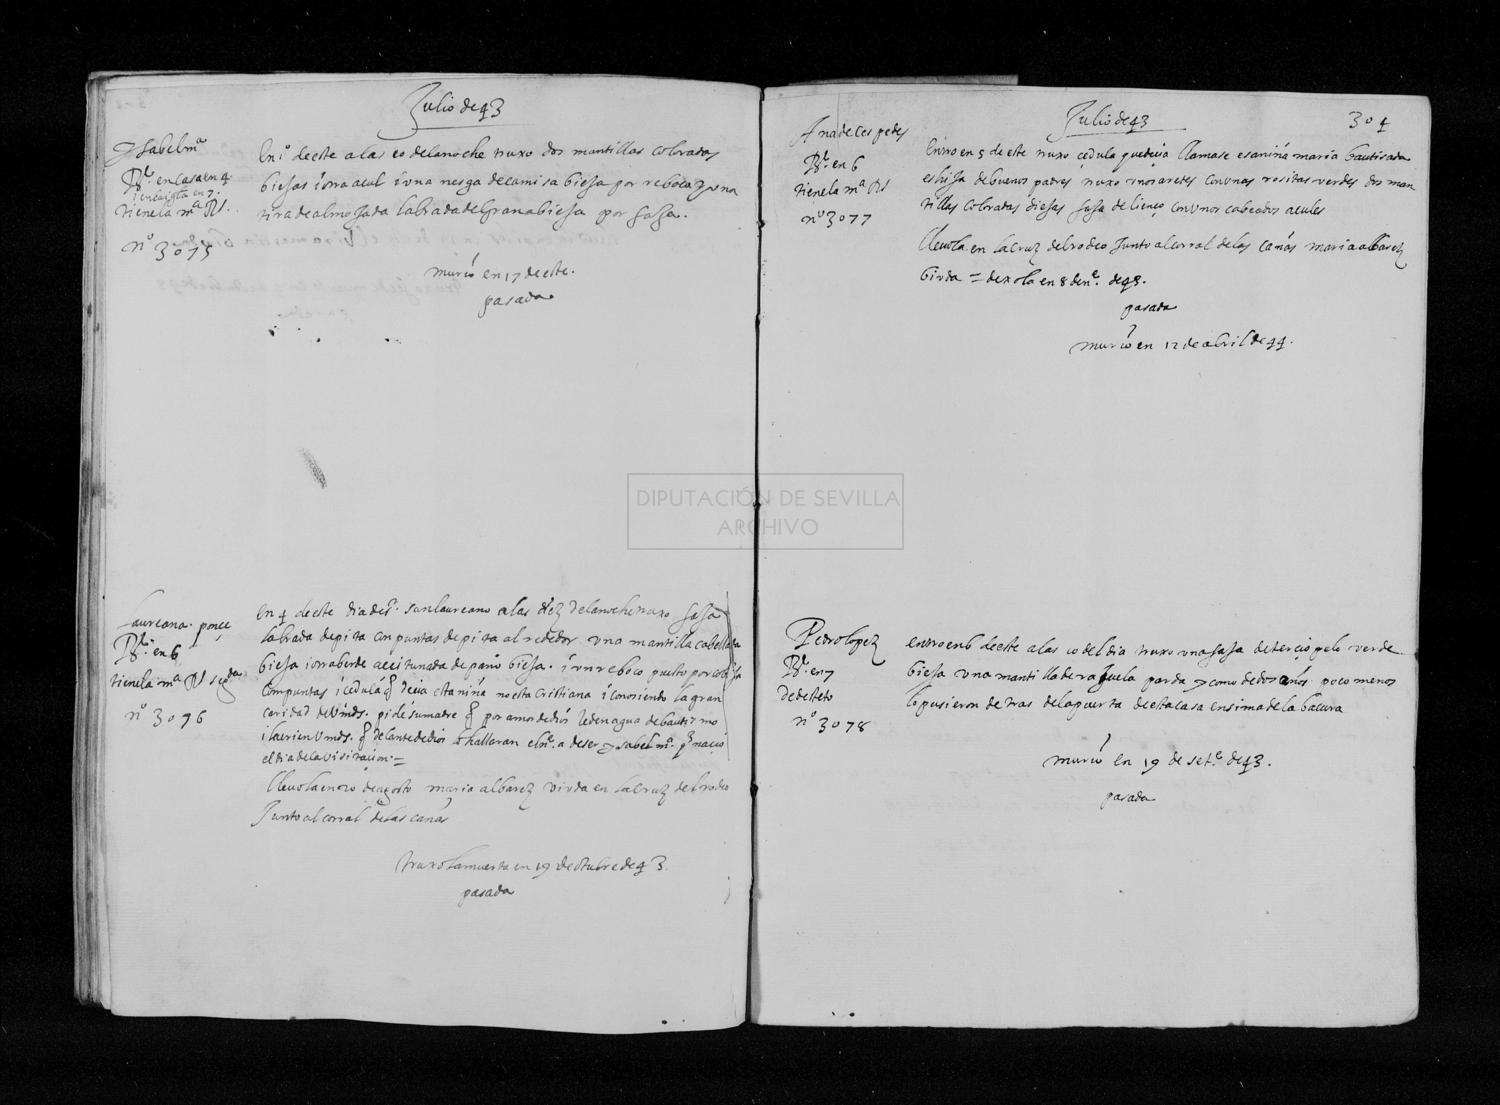 Julio de 43
Ysabel mª
Bº. en casa en 4
tiene la mª Rl.
nº 3075
En iº de este a las 10 de la noche truxo dos mantillas coloradas
biejas i otra açul i una nesga de camisa bieja por reboço y una
tira de almojada labrada de grana bieja por faja.
murio en 17 de este.
pasada
Laureana ponçe
Bº. en 6
tiene la mª Rl segda
nº 3076
en 4 de este dia de sr. san laureano a las diez de la noche truxo faja
labrada de pita con puntas de pita al rededor una mantilla
bieja i otra berde aceitunada de paño bieja. i un reboço puesto por
con puntas i cedula q deçia esta niña no esta Cristiana i conosiendo la gran
caridad de Vmds. pide su madre q por amor de dios le den agua de bautismo
i q delante de dios lo hallaran el ne. a de ser ysabel mª. q naçio
el dia de la visitaçion =
llevola en 10 de agosto maria albarez viuda en la Cruz del rodeo
Junto al corral de las cañas
truxola muerta en 19 de otubre de 43.
pasada
Julio de 43
304
Ana de Cespedes
Bº. en 6
tiene la mª Rl
nº 3077
Entro en 5 de este truxo çedula que deçia llamase esa niña maria bautisada
es hija de buenos padres truxo unos aretes con unas rositas verdes dos man
tillas coloradas biejas faja de lienço con unos cabeados açules
llevola en la Cruz del rodeo Junto al corral de las cañas maria albarez
biuda = dexola en 8 de ne. de 43.
pasada
murio en 12 de abril de 44.
Pedro lopez
Bº. en 7
de destete
nº 3078
entro en 6 de este a las 10 del dia truxo una faja de terçiopelo verde
bieja una mantilla de rajuela parda y como de dos años poco menos
lo pusieron detras de la puerta de esta casa ensima de la basura
murio en 19 de sete. de 43.
pasada
DIPUTACIÓN DE SEVILLA
ARCHIVO